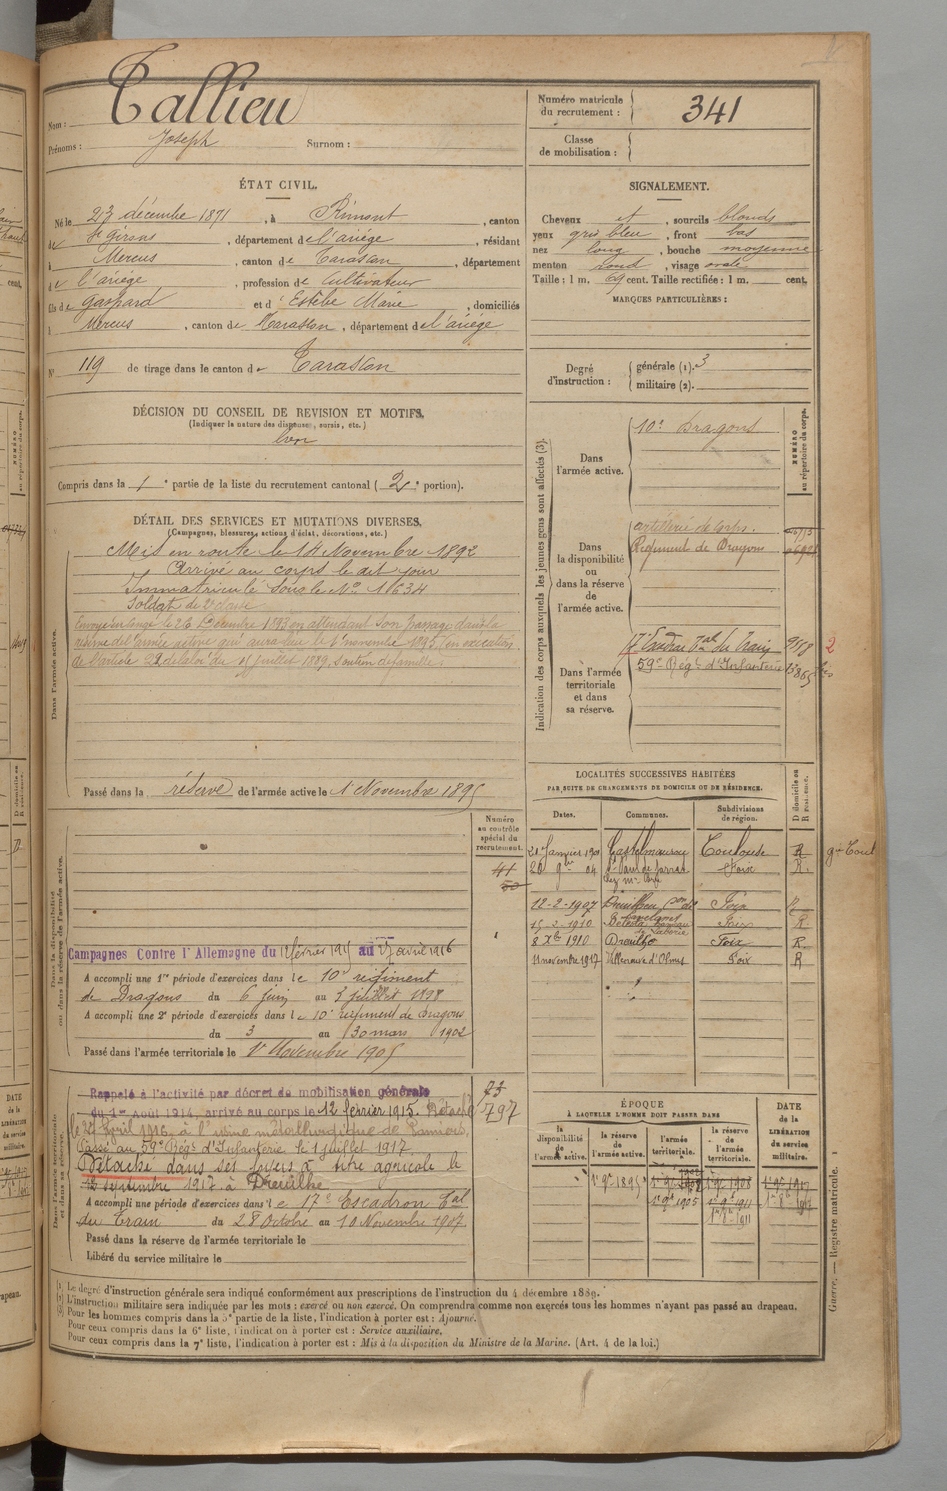 Nom : Tallieu
Prénoms : Joseph Surnom :
Numéro matricule du recrutement : 341
Classe de mobilisation :
ÉTAT CIVIL.
Né le 23 décembre 1871, à Rimont, canton
de St Girons, département de l'ariège, résidant
à Mercus, canton de Tarascon, département
de l'ariège, profession de Cultivateur
fils de Gaspard et d' Estèbe Marie, domiciliés
à Mercus, canton de Tarascon, département de l'ariège
N° 119 de tirage dans le canton de Tarascon
SIGNALEMENT.
Cheveux et, sourcils blonds
yeux gris bleu, front bas
nez long, bouche moyenne
menton rond, visage ovale
Taille : 1 m. 69 cent. Taille rectifiée : 1 m. cent.
MARQUES PARTICULIÈRES :
Degré d'instruction : générale (1). 3
militaire (2).
DÉCISION DU CONSEIL DE REVISION ET MOTIFS.
(Indiquer la nature des dispenses, sursis, etc.)
bon
Compris dans la 1e partie de la liste du recrutement cantonal (2e portion).
DÉTAIL DES SERVICES ET MUTATIONS DIVERSES.
(Campagnes, blessures, actions d'éclat, décorations, etc.)
Dans l'armée active.
Mis en route le 14 Novembre 1892
Arrivé au corps le dit jour
Immatriculé sous le No 1634
Soldat de 2e classe
Envoyé en congé le 26 décembre 1893 en attendant son passage dans la
réserve de l'armée active qui aura lieu le 1er novembre 1895 (en exécution
de l'article 22 de la loi du 15 juillet 1889, Soutien de famille.
Passé dans la réserve de l'armée active le 1 Novembre 1895
Indication des corps auxquels les jeunes gens sont affectés (3).
NUMÉRO au répertoire du corps.
Dans l'armée active.
10e Dragons
Dans la disponibilité ou dans la réserve de l'armée active.
artillerie de corps.
Régiment de Dragons
Dans l'armée territoriale et dans sa réserve.
17e Escadron Tal du Train 2
59e Régt d'Infanterie
LOCALITÉS SUCCESSIVES HABITÉES
PAR SUITE DE CHANGEMENTS DE DOMICILE OU DE RÉSIDENCE.
Dates. Communes. Subdivisions de région. D domicile ou R résidence.
21 Janvier 1901 Castelmaurou Toulouse R
20 9bre 04 St Paul de Jarrat Foix R.
12-2-1907 Foix R
15-2-1910 Bélesta Foix R
8 Xbre 1910 Dreuilhe Foix R
11 novembre 1917 Villeneuve d'Olmes Foix R
Numéro au contrôle spécial du recrutement.
41
Dans la disponibilité ou dans la réserve de l'armée active.
Campagnes Contre l'Allemagne du 12 février 1915 au 27 avril 1916
A accompli une 1re période d'exercices dans le 10e régiment
de Dragons du 6 juin au 3 juillet 1898
A accompli une 2e période d'exercices dans le 10e régiment de dragons
du 3 au 30 mars 1902
Passé dans l'armée territoriale le 1er Novembre 1905
Dans l'armée territoriale et dans sa réserve.
Rappelé à l'activité par décret de mobilisation générale
du 1er Août 1914, arrivé au corps le 12 février 1915. Détaché
le 27 Avril 1916 à l'usine métallurgique de Pamiers,
Passé au 59e Régt d'Infanterie le 1 juillet 1917.
Détaché dans ses foyers à titre agricole le
12 septembre 1917 à Dreuilhe
A accompli une période d'exercices dans le 17e Escadron Tal
du Train du 28 Octobre au 10 Novembre 1907
Passé dans la réserve de l'armée territoriale le
Libéré du service militaire le
797
ÉPOQUE
À LAQUELLE L'HOMME DOIT PASSER DANS
la disponibilité de l'armée active. la réserve de l'armée active. l'armée territoriale. la réserve de l'armée territoriale. DATE de la LIBÉRATION du service militaire.
1er 9bre 1895
1er 9bre 1905
(1) Le degré d'instruction générale sera indiqué conformément aux prescriptions de l'instruction du 4 décembre 1889.
(2) L'instruction militaire sera indiquée par les mots : exercé ou non exercé. On comprendra comme non exercés tous les hommes n'ayant pas passé au drapeau.
(3) Pour les hommes compris dans la 5e partie de la liste, l'indication à porter est : Ajourné.
Pour ceux compris dans la 6e liste, l'indication à porter est : Service auxiliaire.
Pour ceux compris dans la 7e liste, l'indication à porter est : Mis à la disposition du Ministre de la Marine. (Art. 4 de la loi.)
Guerre. — Registre matricule. 1